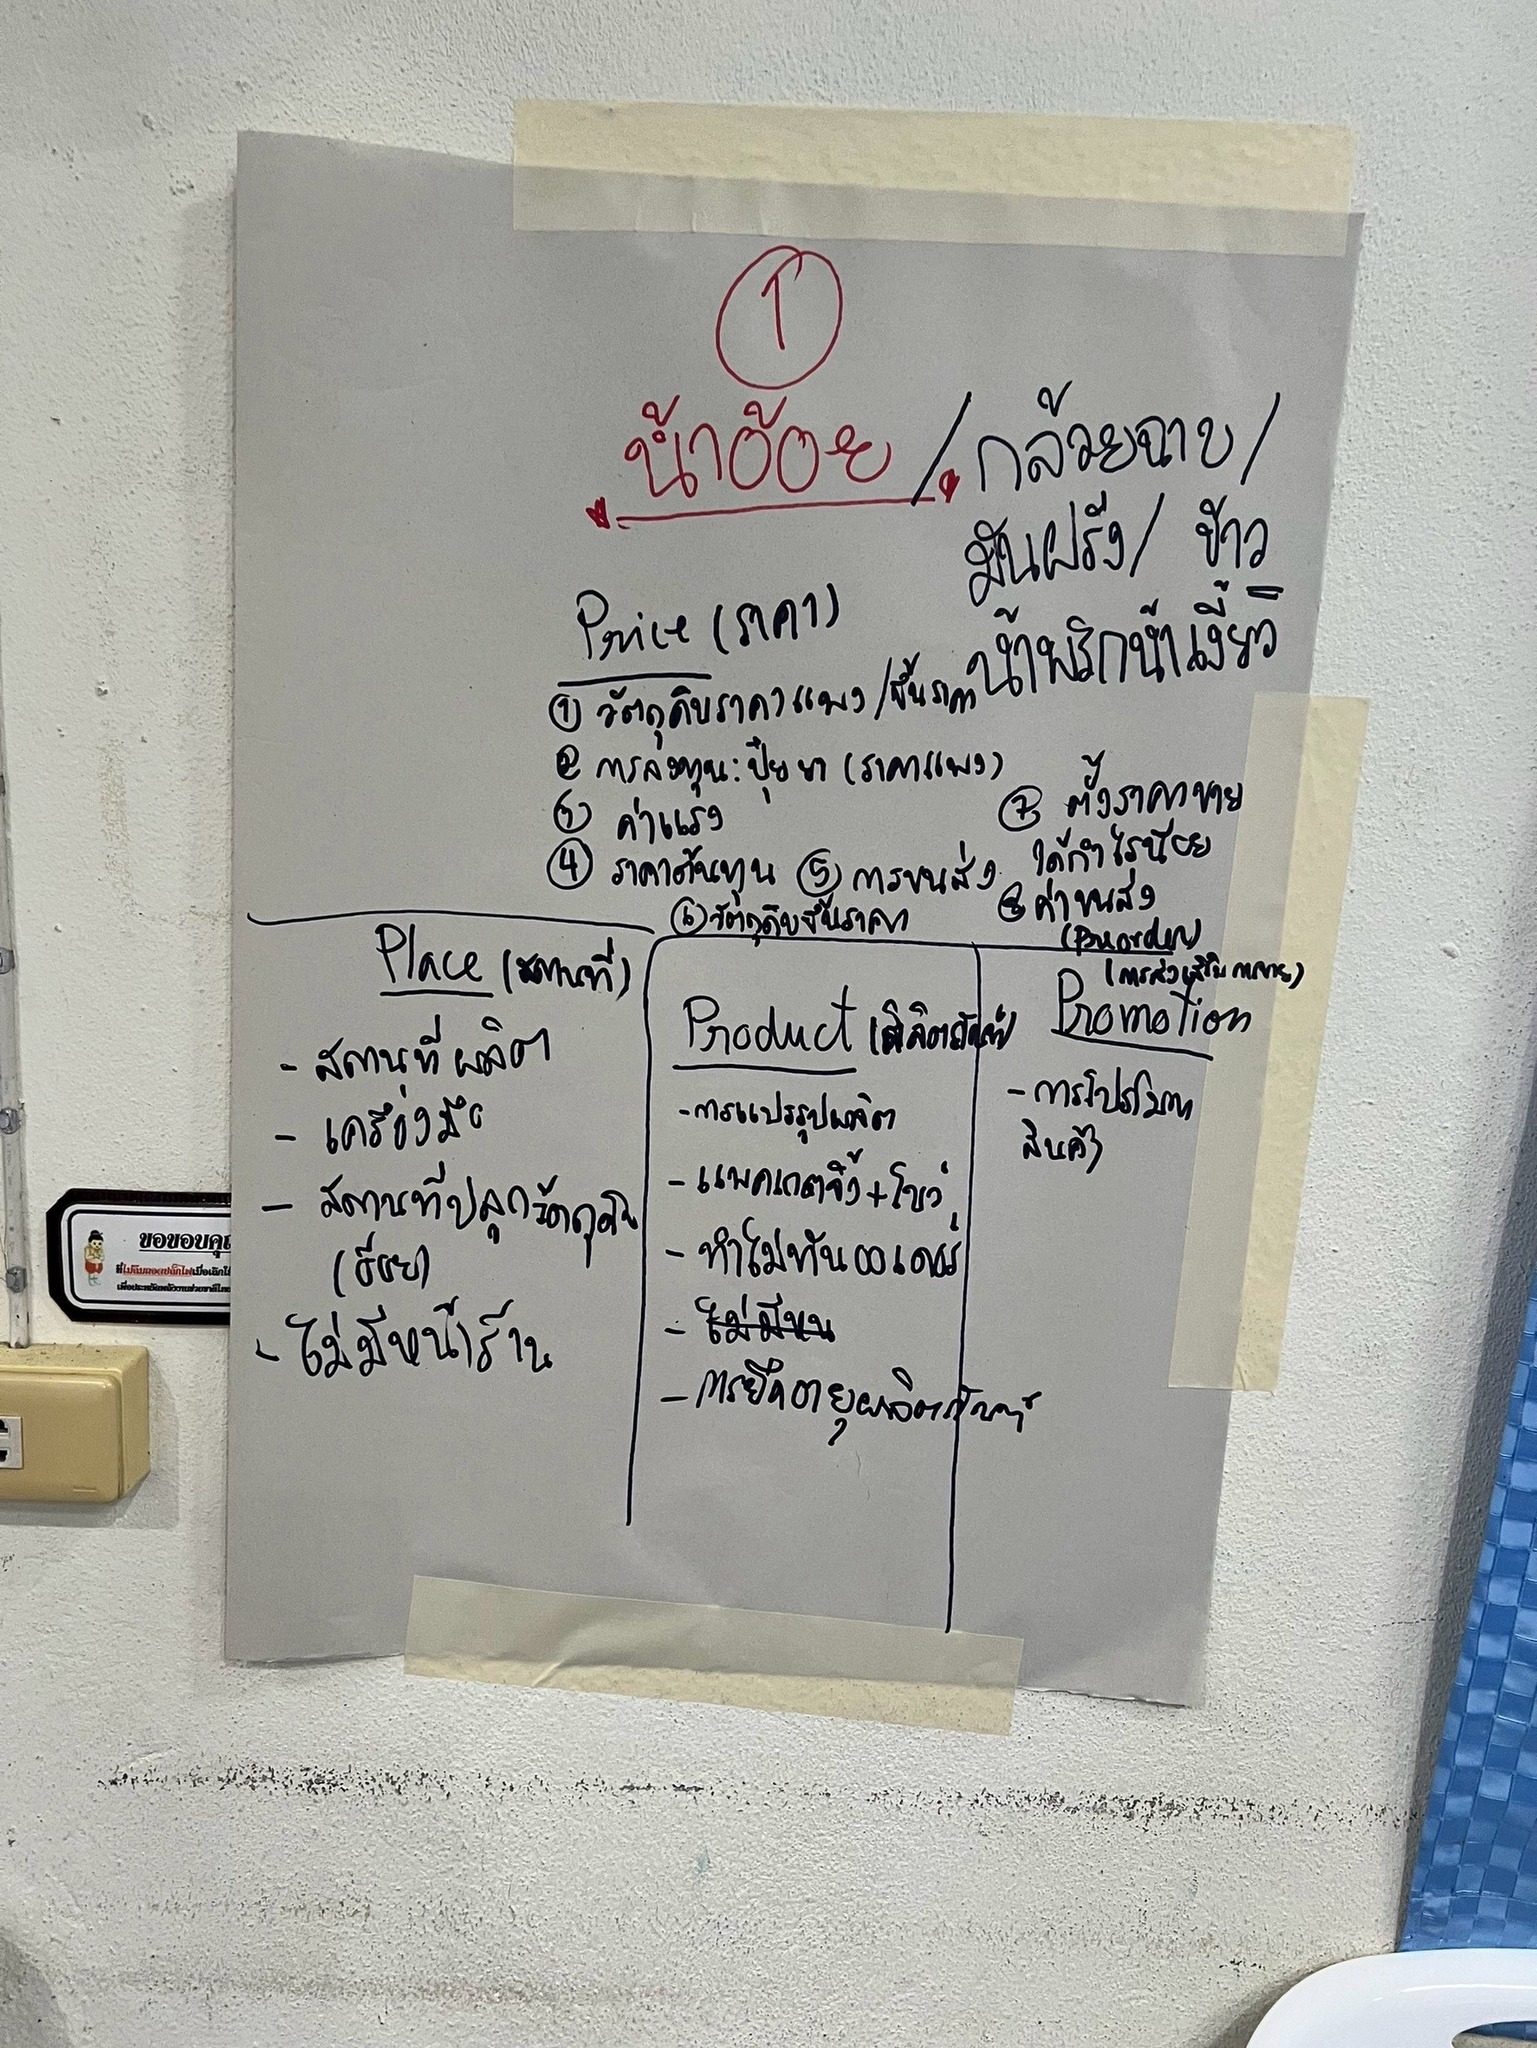 1
น้ำอ้อย / กล้วยฉาบ /
มันฝรั่ง / ข้าว
น้ำพริกน้ำเงี้ยว
Price (ราคา)
① วัตถุดิบราคาแพง/ขึ้นราคา
② การลงทุน: ปุ๋ย ยา (ราคาแพง)
③ ค่าแรง
④ ราคาต้นทุน ⑤ การขนส่ง
⑥ วัตถุดิบขึ้นราคา
⑦ ตั้งราคาขาย
ได้กำไรน้อย
⑧ ค่าขนส่ง
Place (สถานที่)
- สถานที่ผลิต
- เครื่องมือ
- สถานที่ปลูกวัตถุดิบ
(อ้อย)
- ไม่มีหน้าร้าน
Product (ผลิตภัณฑ์)
- การแปรรูปผลิต
- แพคเกตจิ้ง + โชว์
- ทำไม่ทันออเดอร์
- ไม่มีหน
- การยืดอายุผลิตภัณฑ์
(การส่งเสริมการขาย)
Promotion
- การโปรโมท
สินค้า
ขอขอบคุณ
ที่ไม่ลืมถอดปลั๊กไฟเมื่อเลิกใช้
เพื่อประหยัดพลังงานช่วยชาติไทย